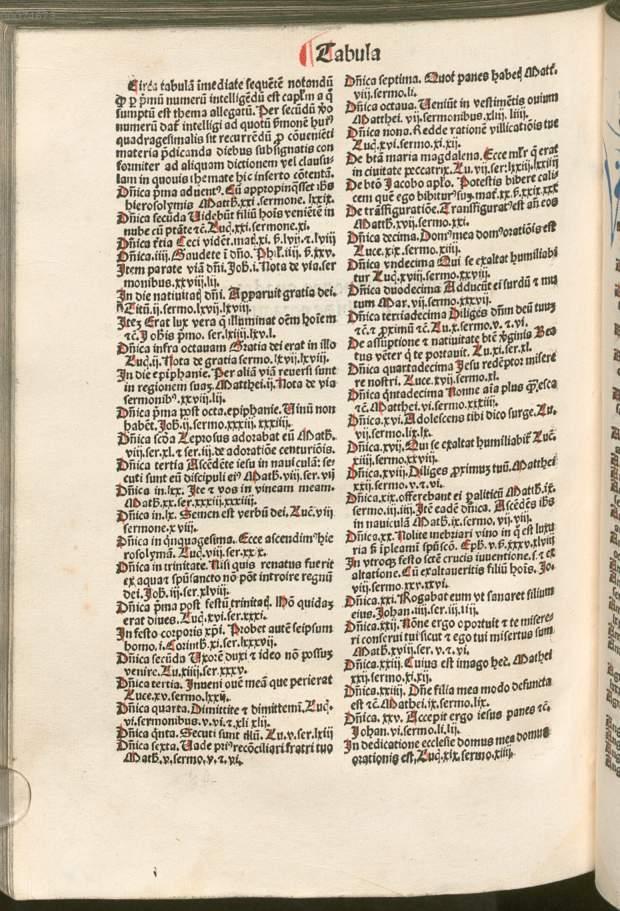 Tabula
Circa tabulā īmediate sequētē notandū
ꝙ ꝑ pͥmū numerū intelligēdū est capl̄m a q̄
sumptū est thema allegatū. Per secūdū v̄o
numerū dat̄ intelligi ad quotū s̄monē huiꝰ
quadragesimalis sit recurrēdū ꝓ cōuenieti
materia p̄dicanda diebus subsignatis con
formiter ad aliquam dictionem vel clausu-
lam in quolibet themate hic inserto cōtentā.
Dn̄ica pͥma aduentꝰ. Cū appropinq̄sset ih̄s
hierosolymis Matth̄.xxi.sermone.lxxix.
Dn̄ica secūda Uidebūt filiū hoīs veniētē in
nube cū ptāte ⁊c̄. Luc̄.xxi.sermone.xi.
Dn̄ica t̄tia Ceci vidēt. mat̄.xi. s̄.lvij.⁊ lviij
Dn̄ica .iiij. Gaudete ī dn̄o. Phil̄.iiij. s̄.xxv.
Item parate viā dn̄i. Joh̄.i. Nota de via.ser
monibus.xxvij.lij.
In die natiuitatꝭ dn̄i. Apparuit gratia dei.
Titū.ij.sermo.lxvij.lxviij.
Itez Erat lux vera q̄ illuminat oēm hoīem
⁊c̄. Johis pͥmo. ser.lxiiij.lxv.l.
Dn̄ica infra octauam Gratia dei erat in illo
Luc̄.ij. Nota de gratia sermo.lxvij.lxviij.
In die epiphanie. Per aliā viā reuersi sunt
in regionem suaz. Matthei.ij. Nota de via
sermonibꝰ.xxvij.lij.
Dn̄ica pͥma post octa.epiphanie. Uinū non
habēt. Joh̄.ij.sermo.xxxiij.xxxiiij.
Dn̄ica scd̄a Leprosus adorabat eū Math̄.
viij.ser.xl.⁊ ser.iij.de adoratiōe centurionis.
Dn̄ica tertia Ascēdēte iesu in nauiculā: se-
cuti sunt eū discipuli eiꝰ Math̄.viij.ser.vij
Dn̄ica in.lxx. Ite ⁊ vos in vineam meam.
Math̄.xx.ser.xxxiij.xxxiiij.
Dn̄ica in.lx. Semen est verbū dei. Luc̄.viij
sermone.xviij.
Dn̄ica in qn̄quagesima. Ecce ascendimꝰ hie
rosolymā. Luc̄.viij.ser.xx.x.
Dn̄ica in trinitate. Nisi quis renatus fuerit
ex aqua ⁊ spūsancto nō pōt introire regnū
dei. Joh̄.iij.ser.xlviij.
Dn̄ica pͥma post festū trinitatꝭ. Hō quidaz
erat diues. Luc̄.xvi.ser.xxxi.
In festo corporis xp̄i. Probet autē seipsum
homo.i.Corinth̄.xi.ser.lxxxvij
Dn̄ica secūda Uxorē duxi ⁊ ideo nō possuz
venire. Lu.xiiij.ser.xxxv.
Dn̄ica tertia. Inueni ouē meā que perierat
Luce.xv.sermo.lxxij.
Dn̄ica quarta. Dimittite ⁊ dimittemī. Luc̄.
vi.sermonibus.v.vi.⁊ xli xlij.
Dn̄ica qn̄ta. Secuti sunt illū. Lu.v.ser.lxiij
Dn̄ica sexta. Uade priꝰ recōciliari fratri tuo
Math̄.v.sermo.v.⁊.vi.
Dn̄ica septima. Quot panes habetꝭ Matt̄.
viij.sermo.li.
Dn̄ica octaua. Ueniūt in vestimētis ouium
Matthei.vij.sermonibus.xliij.liiij.
Dn̄ica nona. Redde rationē villicatiōis tue
Luc̄.xvi.sermo.xi.xij.
De btā maria magdalena. Ecce ml̄r q̄ erat
in ciuitate peccatrix. Lu.vij.ser.lxxiij.lxxiiij
De btō Jacobo aplo. Potestis bibere cali
cem quē ego bibiturꝰ suz. mat̄.xx.s̄.xxix.xxx
De trāsfiguratiōe. Trāsfiguratꝰ est an̄ eos
Matth̄.xvij.sermo.xxi.
Dn̄ica decima. Domꝰ mea domꝰ oratiōis est
Luce.xix.sermo.xiiij.
Dn̄ica vndecima Qui se exaltat humiliabi
tur Luc̄.xviij.sermo.xxviij.
Dn̄ica duodecima Adducūt ei surdū ⁊ mu
tum Mar.vij.sermo.xxxvij.
Dn̄ica terciadecima Diliges dn̄m deū tuuz
⁊c̄.⁊ ꝓximū ⁊c̄. Lu.x.sermo.v.⁊.vi.
De assūptione ⁊ natiuitate btē v̄ginis Bea
tus vēter q̄ te portauit. Lu.xi.ser.xl.
Dn̄ica quartadecima Jesu redēptor misere
re nostri. Luce.xvij.sermo.xl.
Dn̄ica qn̄tadecima Nonne aīa plus q̄ꝫ esca
⁊c̄. Matthei.vi.sermo.xxxiiij.
Dn̄ica.xvi. Adolescens tibi dico surge. Lu.
vij.sermo.lix.lx.
Dn̄ica.xvij. Qui se exaltat humiliabit̄ Luc̄.
xiiij.sermo.xxviij.
Dn̄ica.xviij. Diliges ꝓximuz tuū. Matthei
xxij.sermo.v.⁊.vi.
Dn̄ica.xix. offerebant ei ꝑaliticū Math̄.ix.
sermo.iij.iiij. Itē eadē dn̄ica. Ascēdēs ih̄s
in nauiculā Math̄.ix.sermo.vij.viij.
Dn̄ica.xx. Nolite inebriari vino in q̄ est luxu
ria s̄ꝫ īpleamī spūscō. Eph̄.v.s̄.xxxv.xlviij
In vtroqꝫ festo scē crucis īnuentione.s.⁊ ex
altatione. Cū exaltaueritis filiū hoīs. Jo.
viij.sermo.xxv.xxvi.
Dn̄ica.xxi. Rogabat eum vt sanaret filium
eius. Johan.iiij.ser.iij.iiij.
Dn̄ica.xxij. Nōne ergo oportuit ⁊ te misere-
ri conserui tui sicut ⁊ ego tui misertus sum
Math̄.xviij.ser.v.⁊.vi.
Dn̄ica.xxiij. Cuius est imago hec. Mathei
xxij.sermo.xi.xij.
Dn̄ica.xxiiij. Dn̄e filia mea modo defuncta
est ⁊c̄. Mathei.ix.sermo.lix.
Dn̄ica.xxv. Accepit ergo iesus panes ⁊c̄.
Johan.vi.sermo.li.lij.
In dedicatione ecclesie domus mea domus
orationis est. Luc̄.xix.sermo.xiiij.